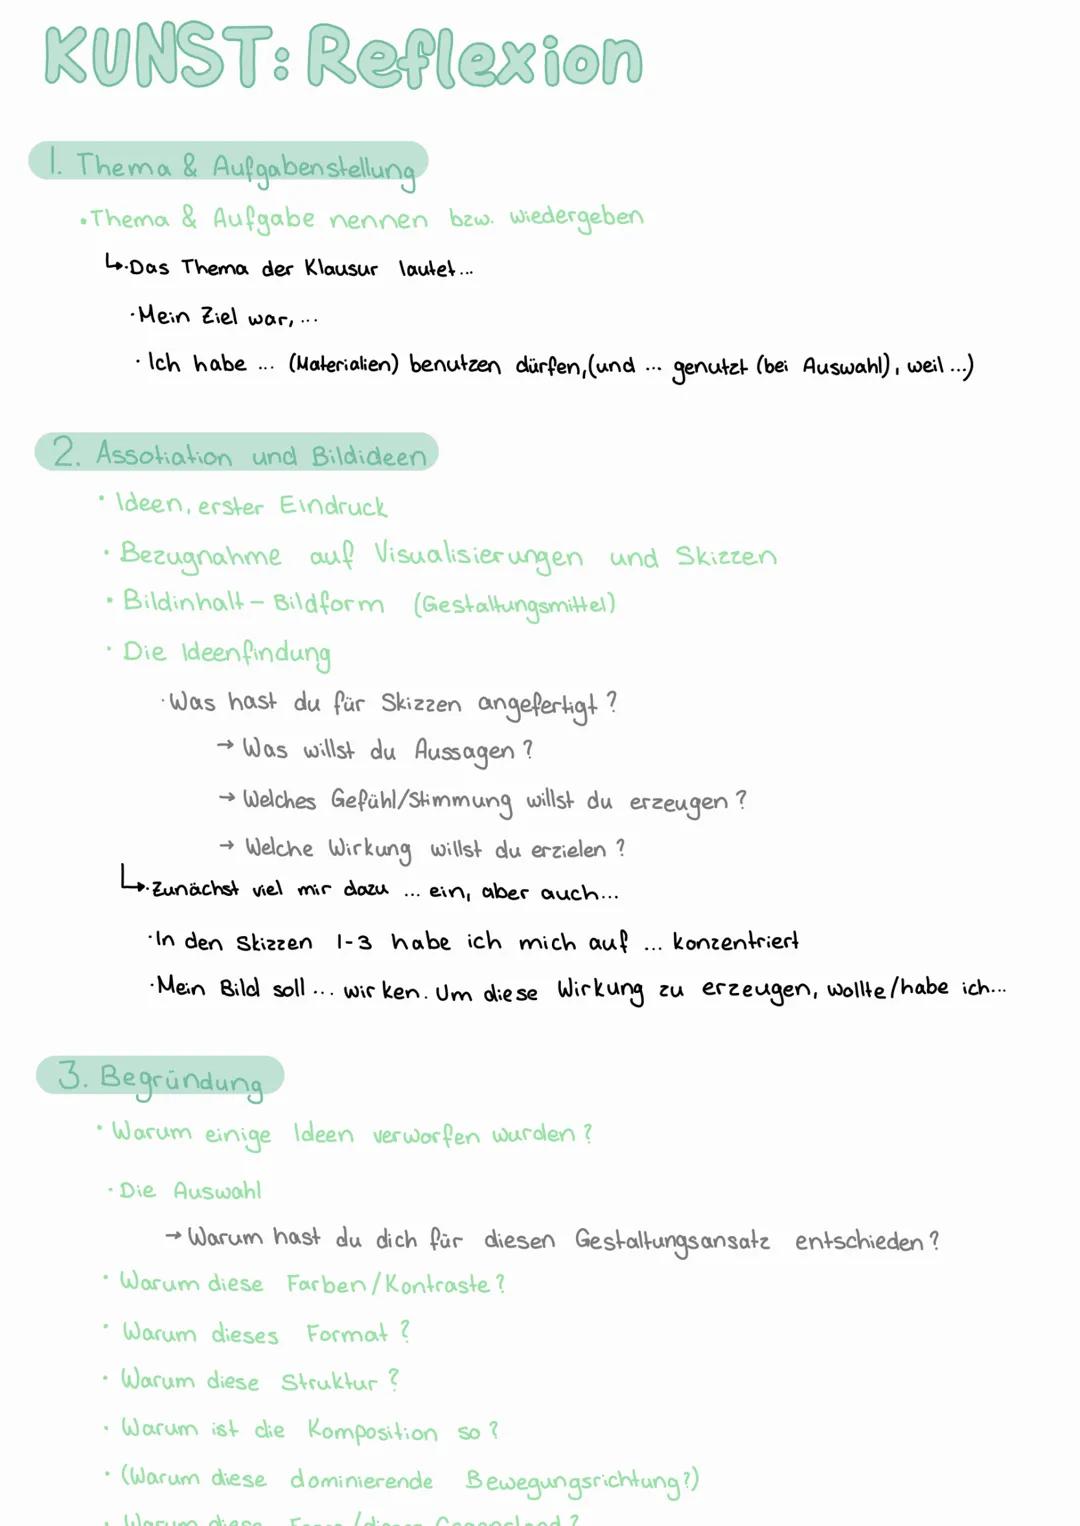 KUNST: Reflexion
1. Thema & Aufgabenstellung
• Thema & Aufgabe nennen bzw. wiedergeben
↳ · Das Thema der Klausur lautet...
· Mein Ziel war, ...
· Ich habe ... (Materialien) benutzen dürfen, (und ... genutzt (bei Auswahl), weil ...)
2. Assotiation und Bildideen
· Ideen, erster Eindruck
· Bezugnahme auf Visualisierungen und Skizzen
· Bildinhalt - Bildform (Gestaltungsmittel)
· Die Ideenfindung
· Was hast du für Skizzen angefertigt ?
→ Was willst du Aussagen ?
→ Welches Gefühl/Stimmung willst du erzeugen ?
→ Welche Wirkung willst du erzielen ?
↳ · Zunächst viel mir dazu ... ein, aber auch...
· In den Skizzen 1-3 habe ich mich auf ... konzentriert
· Mein Bild soll ... wirken. Um diese Wirkung zu erzeugen, wollte/habe ich...
3. Begründung
· Warum einige Ideen verworfen wurden ?
· Die Auswahl
→ Warum hast du dich für diesen Gestaltungsansatz entschieden ?
· Warum diese Farben/Kontraste ?
· Warum dieses Format ?
· Warum diese Struktur ?
· Warum ist die Komposition so ?
· (Warum diese dominierende Bewegungsrichtung?)
· Warum diese